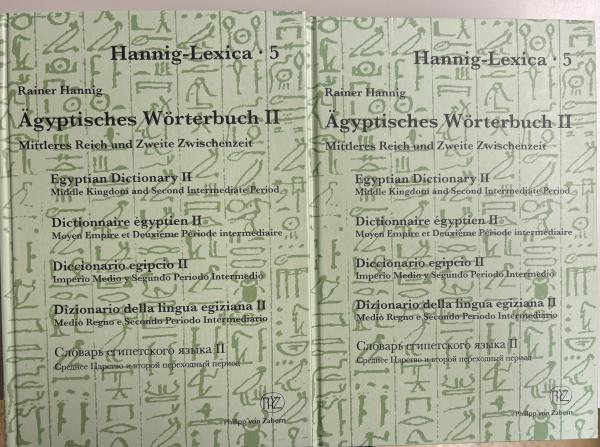 Hannig-Lexica · 5
Rainer Hannig
Ägyptisches Wörterbuch II
Mittleres Reich und Zweite Zwischenzeit
Egyptian Dictionary II
Middle Kingdom and Second Intermediate Period
Dictionnaire égyptien II
Moyen Empire et Deuxième Période intermédiaire
Diccionario egipcio II
Imperio Medio y Segundo Periodo Intermedio
Dizionario della lingua egiziana II
Medio Regno e Secondo Periodo Intermediario
Словарь египетского языка II
Среднее Царство и второй переходный период
Philipp von Zabern
Hannig-Lexica · 5
Rainer Hannig
Ägyptisches Wörterbuch II
Mittleres Reich und Zweite Zwischenzeit
Egyptian Dictionary II
Middle Kingdom and Second Intermediate Period
Dictionnaire égyptien II
Moyen Empire et Deuxième Période intermédiaire
Diccionario egipcio II
Imperio Medio y Segundo Periodo Intermedio
Dizionario della lingua egiziana II
Medio Regno e Secondo Periodo Intermediario
Словарь египетского языка II
Среднее Царство и второй переходный период
Philipp von Zabern